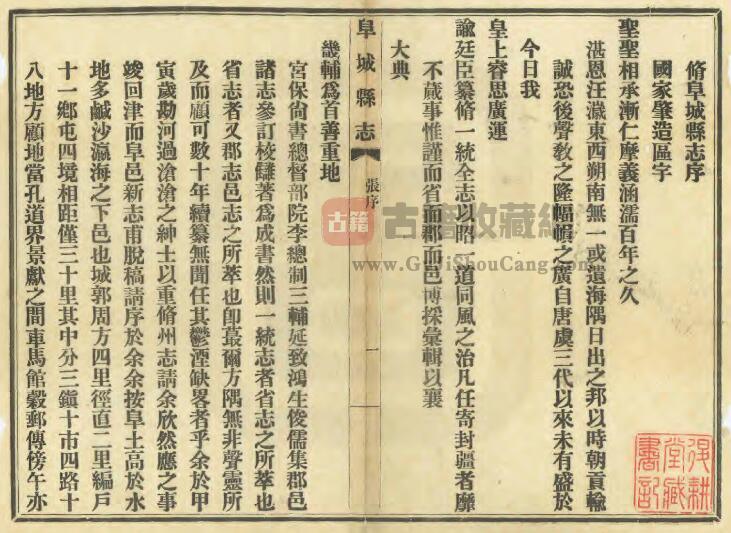 脩阜城縣志序
國家肇造區宇
聖聖相承漸仁摩義涵濡百年之久
湛恩汪濊東西朔南無一或遺海隅日出之邦以時朝貢輸
誠恐後聲敎之隆幅幀之廣自唐虞三代以來未有盛於
今日我
皇上睿思廣運
諭廷臣纂脩一統全志以昭一道同風之治凡任寄封疆者靡
不蕆事惟謹而省而郡而邑博採彙輯以襄
大典
阜城縣志
張序
一
畿輔爲首善重地
宮保尙書總督部院李總制三輔延致鴻生俊儒集郡邑
諸志參訂校讎著爲成書然則一統志者省志之所萃也
省志者又郡志邑志之所萃也卽蕞爾方隅無非聲靈所
及而顧可數十年續纂無聞任其鬱湮缺畧者乎余於甲
寅歲勘河過滄滄之紳士以重脩州志請余欣然應之事
竣回津而阜邑新志甫脫稿請序於余余按阜土高於水
地多鹹沙瀛海之下邑也城郭周方四里徑直二里編戶
十一鄉屯四境相距僅三十里其中分三鎭十市四路十
八地方顧地當孔道界景獻之間車馬館穀郵傳傍午亦
古籍收藏
www.GujiShouCang.com
堂藏
書記